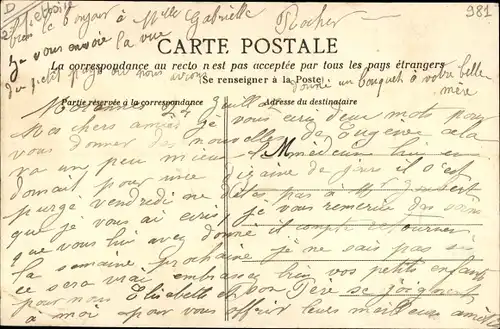 981
D
bien le bonjour à Mlle Gabrielle Rocher
je vous envoie la vue
du petit pays ou nous avons
donné un bouquet à votre belle
mère
CARTE POSTALE
La correspondance au recto n'est pas acceptée par tous les pays étrangers
(Se renseigner à la Poste)
Partie réservée à la correspondance
Adresse du destinataire
24 Juillet
Mes chers amis je vous écris deux mots pour
vous donner des nouvelles de Eugene cela
va un peu mieux Médecin lui en
donnait pour une dizaine de jours il s'est
purgé vendredi ne dites pas à
que je vous ai écris je vous remercie des soins
que vous lui avez donné il compte retourner
la semaine prochaine je ne sais pas si
ce sera vrai embrassez bien vos petits enfants
pour nous Elisabeth et son Père se joignent
à moi pour vous offrir leurs meilleurs